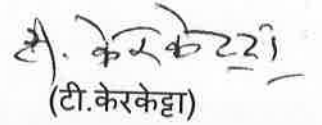 टी. केरकेट्टा
(टी.केरकेट्टा)